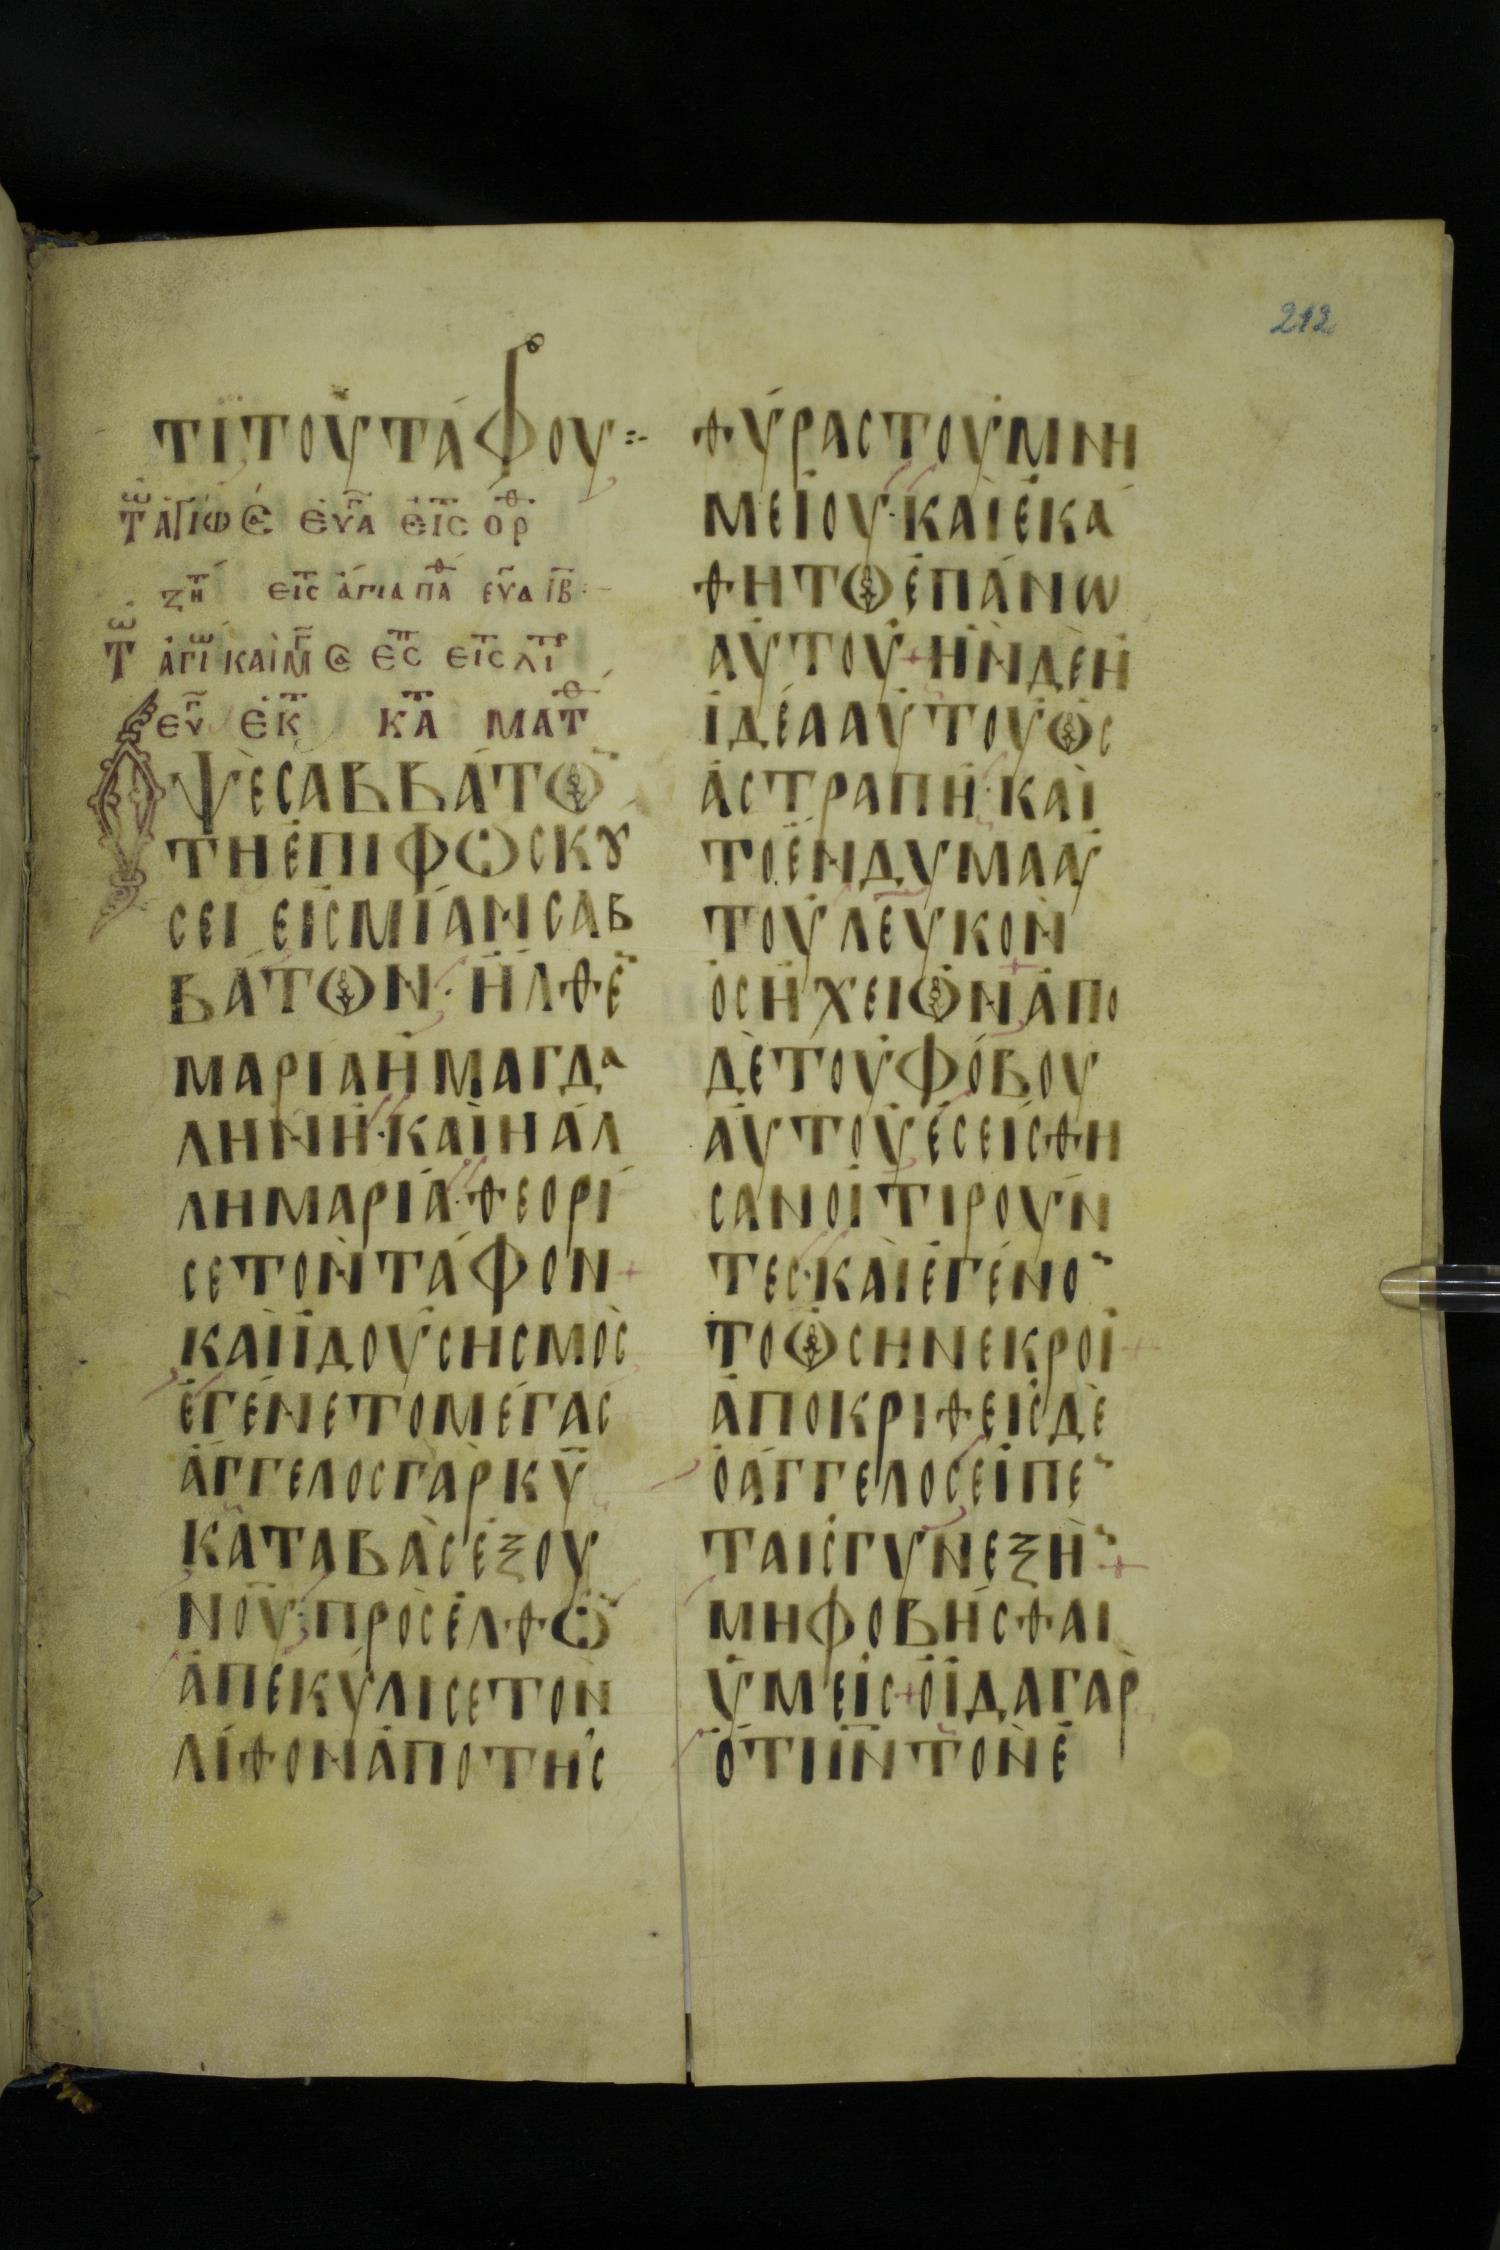 212
ΤΙ ΤΟΥ ΤΑΦΟΥ:-
Τῶ ΑΓΙΩ Ϲ ΕΥΑ ΕΙϹ ΟΡ
ΖΗ ΕΙϹ ΑΓΙΑ ΠΑ ΕΥΑ ΙΒ:-
Τῶ ΑΓΙ ΚΑΙ Μ Ϲ ΕϹ ΕΙϹ ΛΙ
ΕΥ ΕΚ ΚΑ ΜΑΤ
ΟΨΕ ϹΑΒΒΑΤΩ
ΤΗ ΕΠΙΦΩϹΚΟΥ
ϹΕΙ ΕΙϹ ΜΙΑΝ ϹΑΒ
ΒΑΤΩΝ· ΗΛΘΕ
ΜΑΡΙΑ Η ΜΑΓΔΑ
ΛΗΝΗ· ΚΑΙ Η ΑΛ
ΛΗ ΜΑΡΙΑ· ΘΕΟΡΙ
ϹΕ ΤΟΝ ΤΑΦΟΝ+
ΚΑΙ ΙΔΟΥ ϹΗϹΜΟϹ
ΕΓΕΝΕΤΟ ΜΕΓΑϹ
ΑΓΓΕΛΟϹ ΓΑΡ ΚΥ
ΚΑΤΑΒΑϹ ΕΞ ΟΥ
ΝΟΥ· ΠΡΟϹΕΛΘΩ
ΑΠΕΚΥΛΙϹΕ ΤΟΝ
ΛΙΘΟΝ ΑΠΟ ΤΗϹ
ΘΥΡΑϹ ΤΟΥ ΜΝΗ
ΜΕΙΟΥ· ΚΑΙ ΕΚΑ
ΘΗΤΩ ΕΠΑΝΩ
ΑΥΤΟΥ+ ΗΝ ΔΕ Η
ΙΔΕΑ ΑΥΤΟΥ ΩϹ
ΑϹΤΡΑΠΗ· ΚΑΙ
ΤΟ ΕΝΔΥΜΑ ΑΥ
ΤΟΥ ΛΕΥΚΟΝ
ΟϹΗ ΧΕΙΩΝ+ ΑΠΟ
ΔΕ ΤΟΥ ΦΟΒΟΥ
ΑΥΤΟΥ ΕϹΕΙϹΘΗ
ϹΑΝ ΟΙ ΤΙΡΟΥΝ
ΤΕϹ· ΚΑΙ ΕΓΕΝΟ
ΤΟ ΩϹΗ ΝΕΚΡΟΙ+
ΑΠΟΚΡΙΘΕΙϹ ΔΕ
Ο ΑΓΓΕΛΟϹ ΕΙΠΕ
ΤΑΙϹ ΓΥΝΕΞΗ+
ΜΗ ΦΟΒΗϹΘΑΙ
ΥΜΕΙϹ+ ΟΙΔΑ ΓΑΡ
ΟΤΙ ΙΝ ΤΟΝ Ε